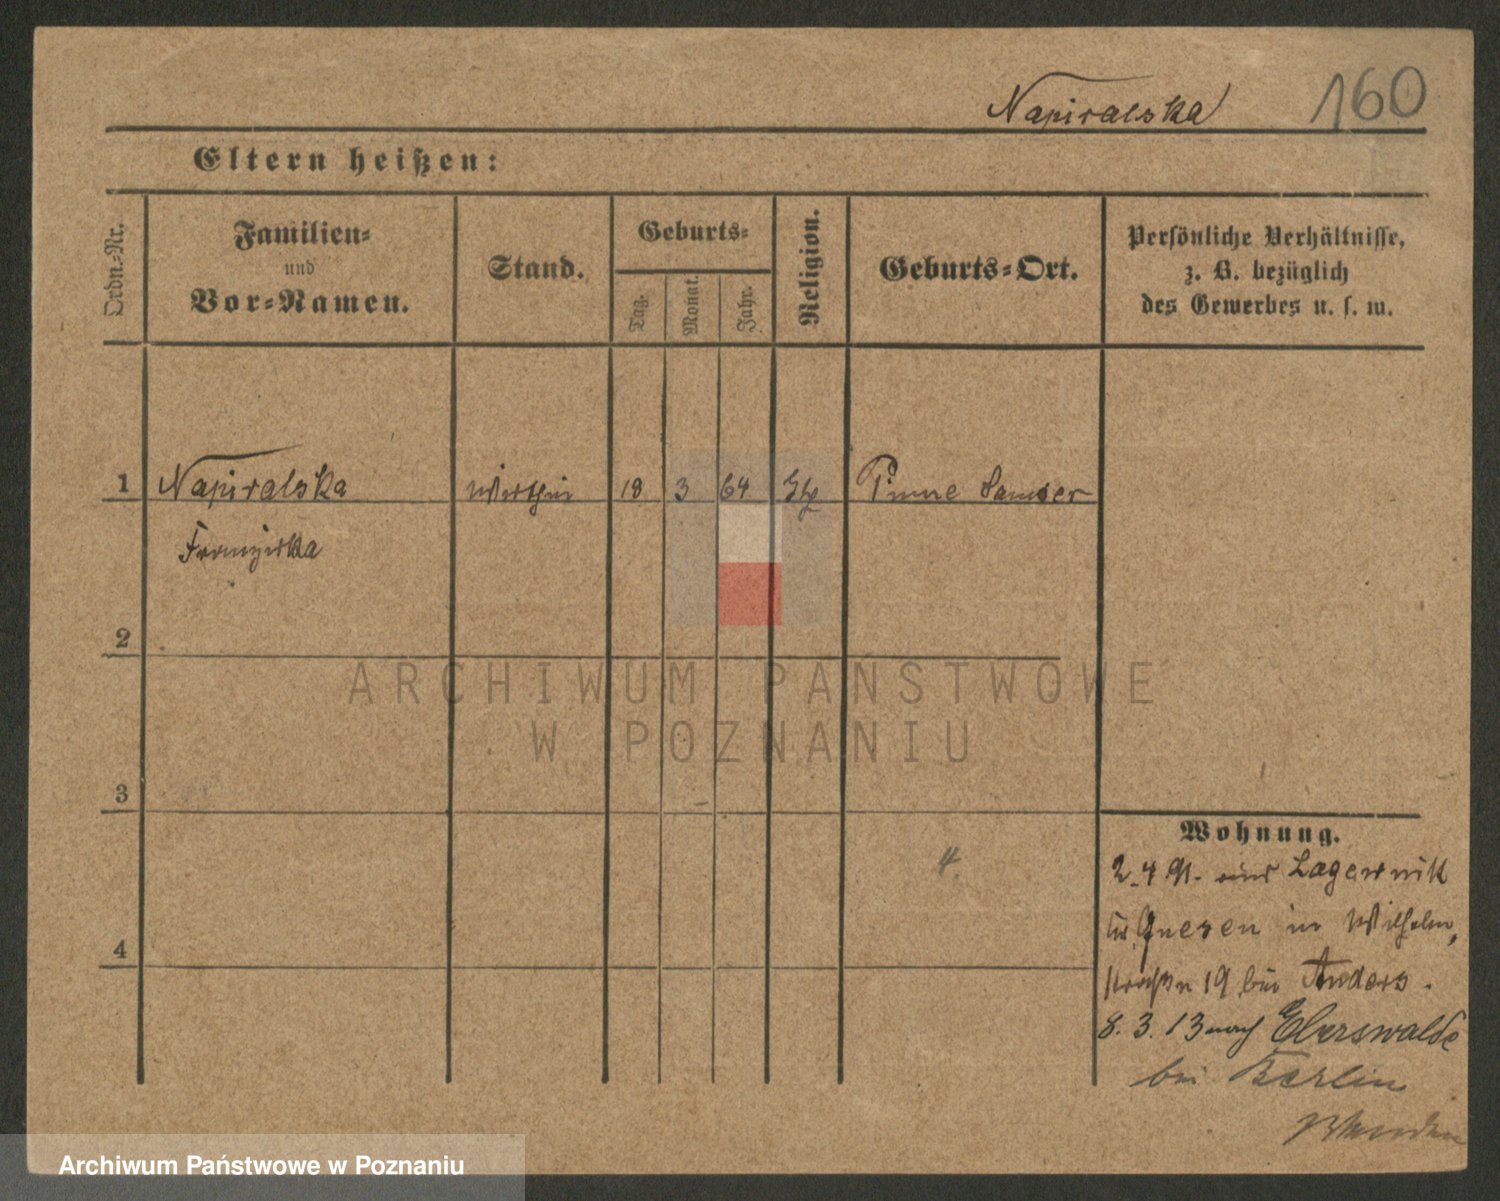 Napiralska 160
Eltern heißen:
Ordn.-Nr.
Familien-
und
Vor-Namen.
Stand.
Geburts-
Tag.
Monat.
Jahr.
Religion.
Geburts-Ort.
Persönliche Verhältnisse,
z. B. bezüglich
des Gewerbes u. s. w.
1 Napiralska 18 3 64 Pinne Samter
Franziska
2
3
4
ARCHIWUM PAŃSTWOWE
W POZNANIU
Wohnung.
4.
2. 4 aus
Gnesen in Wilhelm-
straße 19 bei Anders.
8. 3. 13 nach Eberswalde
bei Berlin
Archiwum Państwowe w Poznaniu